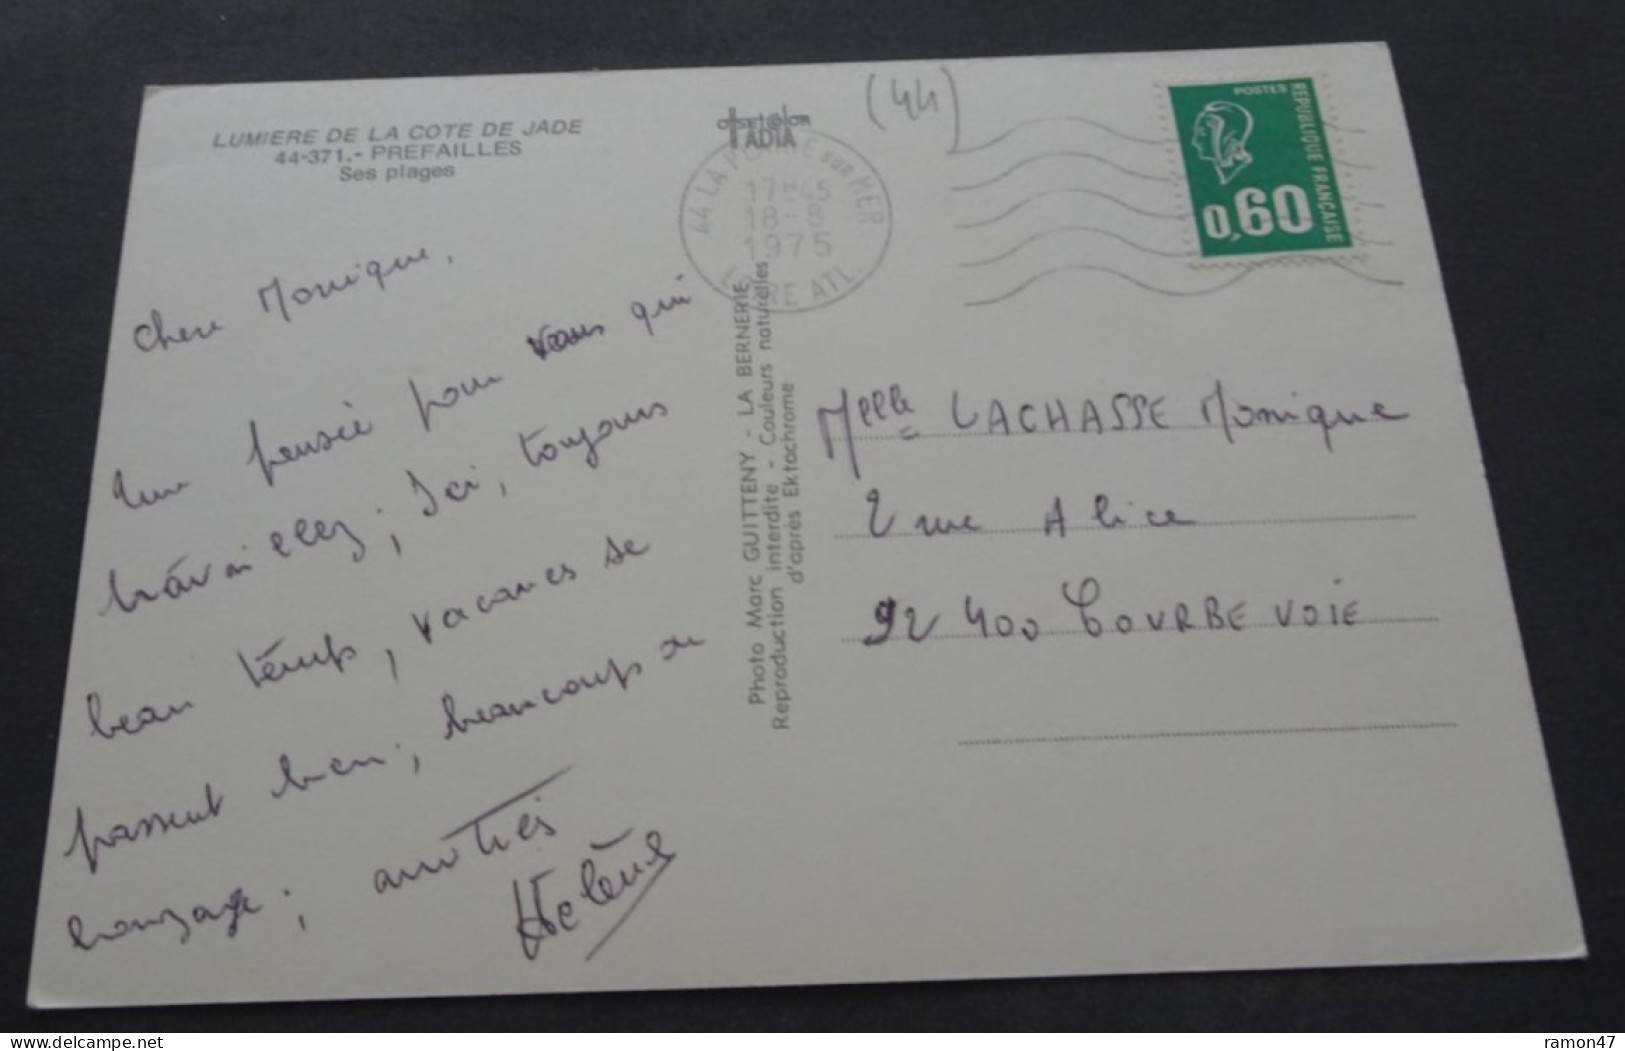 LUMIERE DE LA COTE DE JADE
44-371.- PREFAILLES
Ses plages
(44)
44 LA PLAINE sur MER
17H45
18-8
1975
LOIRE ATL.
POSTES
REPUBLIQUE FRANÇAISE
0,60
Photo Marc GUITTENY - LA BERNERIE
Reproduction interdite - Couleurs naturelles
d'après Ektachrome
Chere Monique,
Une pensée pour vous qui
travaillez; Ici, toujours
beau temps, vacances se
passent bien; beaucoup de
bronzage; amitiés
Helène
Melle LACHASSE Monique
2 rue Alice
92 400 COURBEVOIE
ramon47